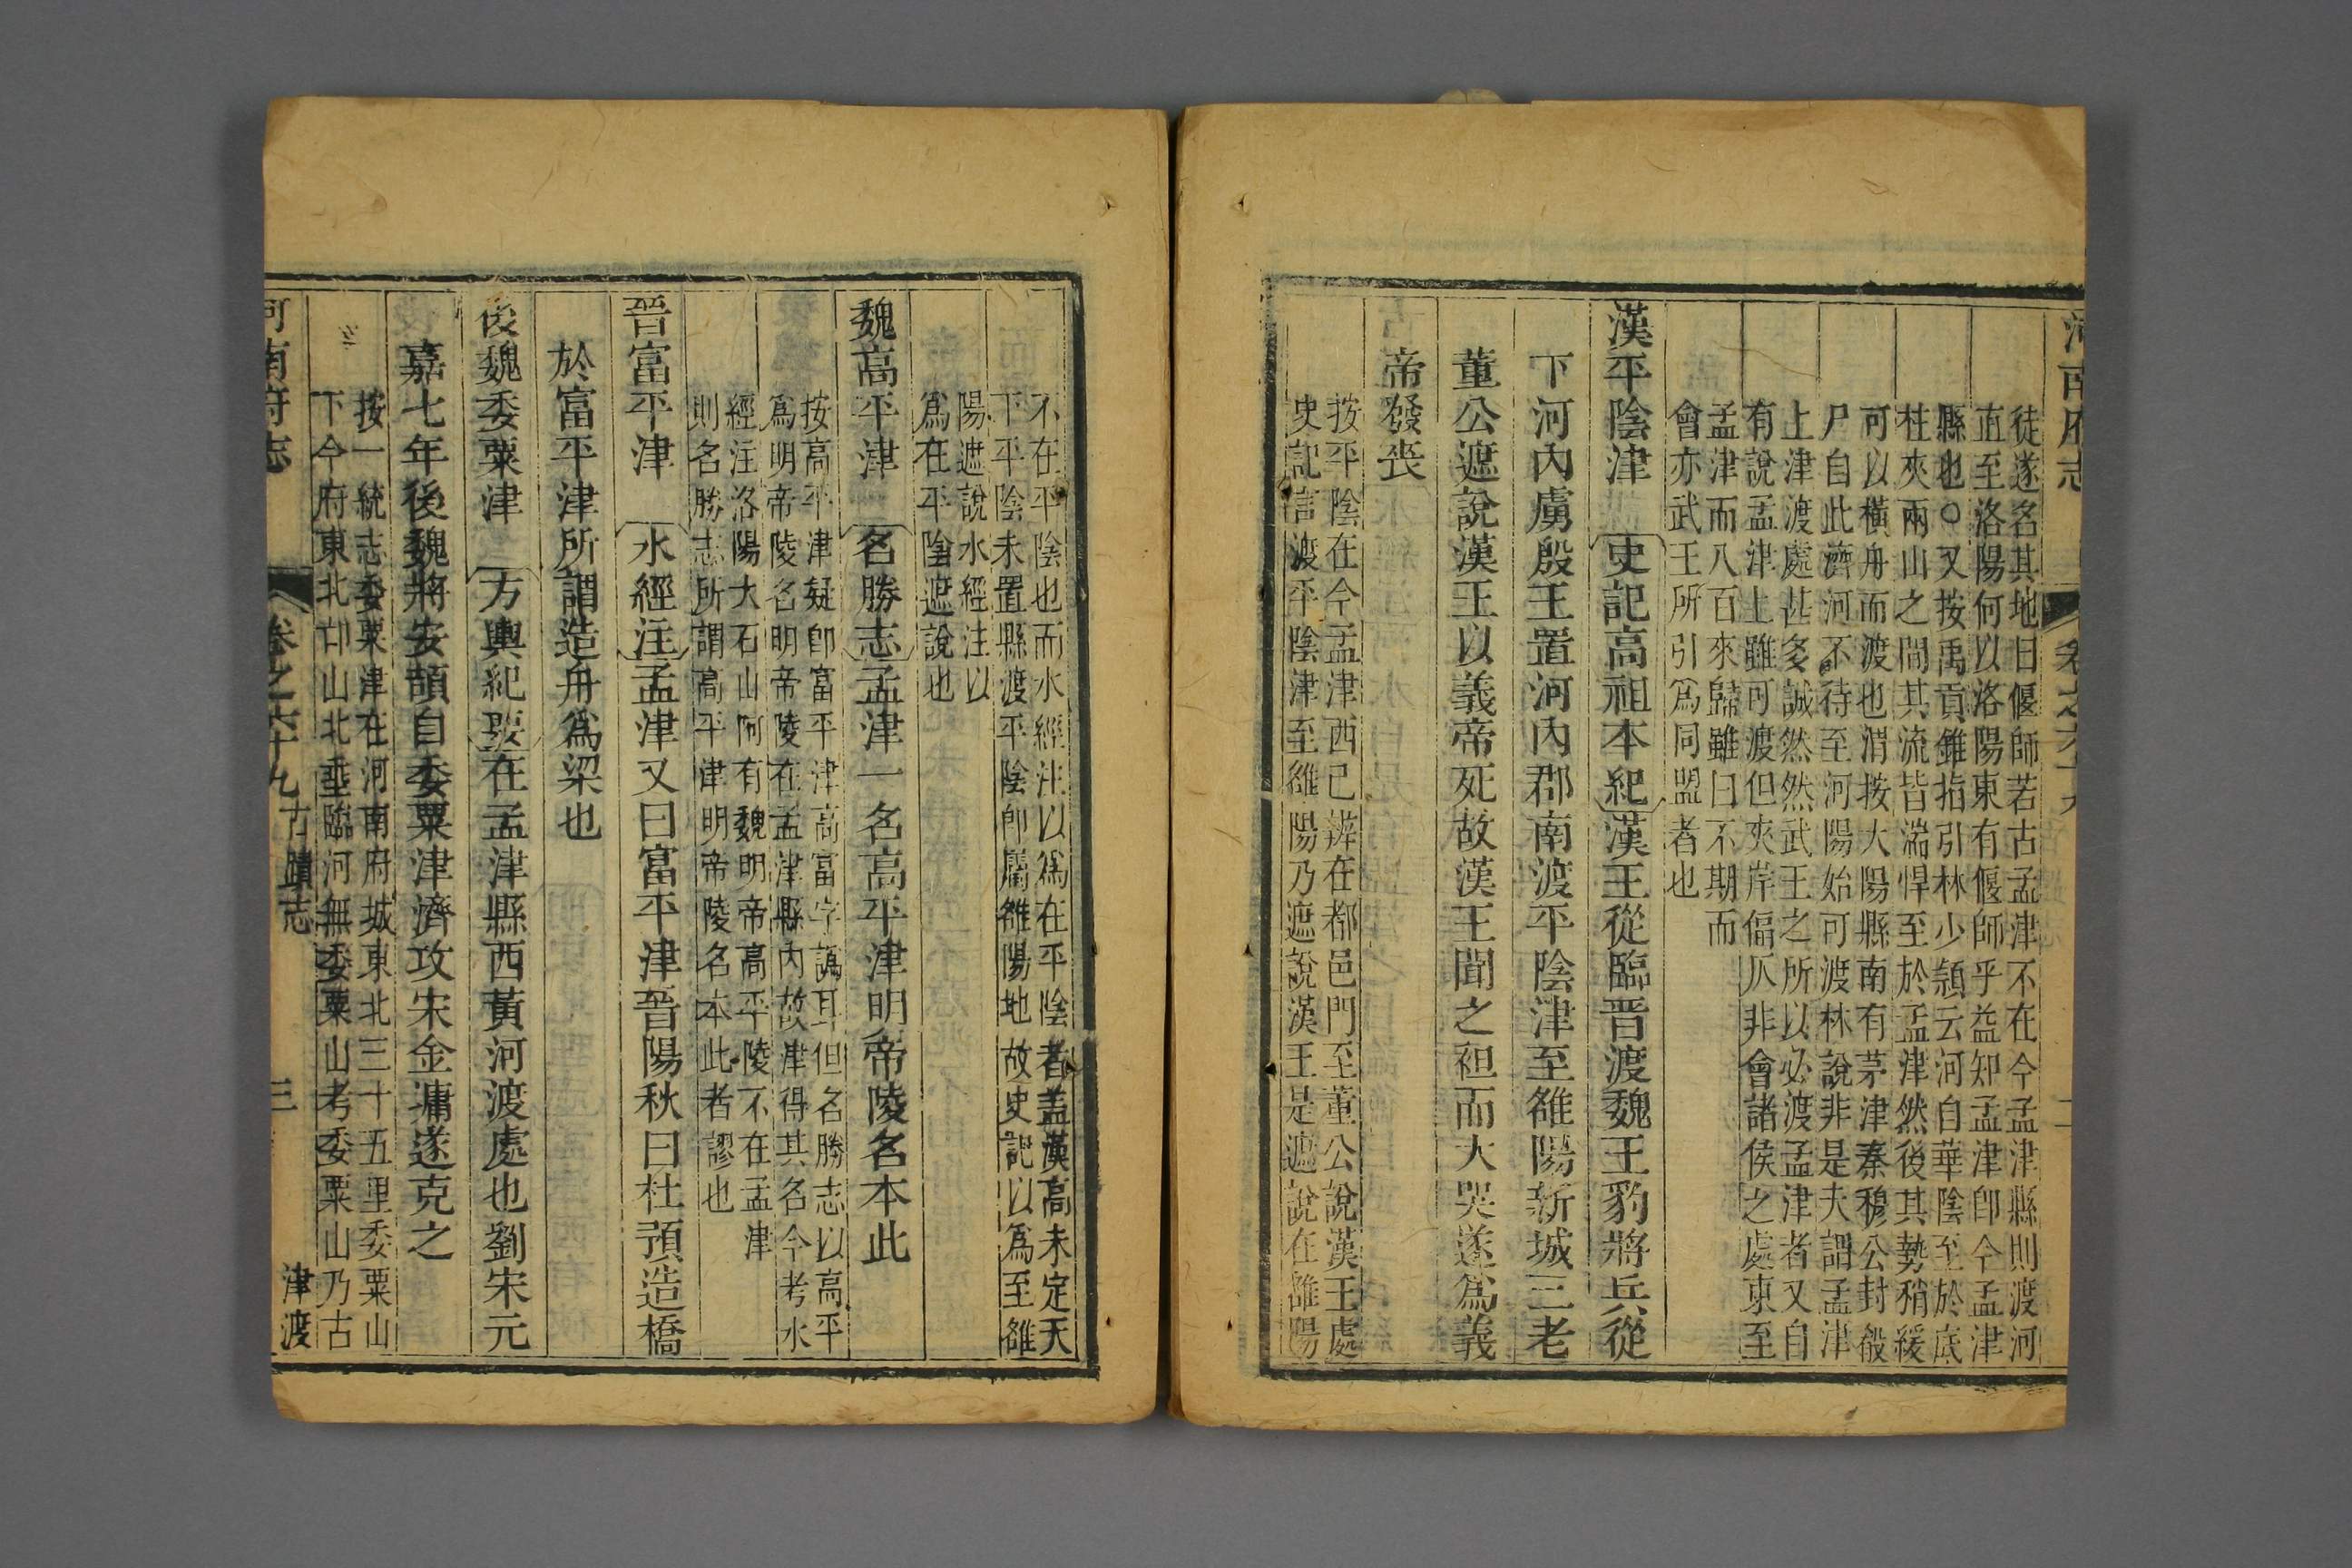 河南府志
卷之六十九
二
徒遂名其地曰偃師若古孟津不在今孟津縣則渡河
直至洛陽何以洛陽東有偃師乎益知孟津卽今孟津
縣也○又按禹貢錐指引林少頴云河自華陰至於底
柱夾兩山之間其流皆湍悍至於孟津然後其勢稍緩
可以橫舟而渡也渭按大陽縣南有茅津秦穆公封殽
尸自此濟河不待至河陽始可渡林說非是夫謂孟津
上津渡處甚多誠然然武王之所以必渡孟津者又自
有說孟津上雖可渡但夾岸偪仄非會諸侯之處東至
孟津而八百來歸雖曰不期而
會亦武王所引爲同盟者也
漢平陰津 史記高祖本紀漢王從臨晋渡魏王豹將兵從
下河內虜殷王置河內郡南渡平陰津至雒陽新城三老
董公遮說漢王以義帝死故漢王聞之袒而大哭遂爲義
帝發喪
按平陰在今孟津西已辨在都邑門至董公說漢王處
史記言渡平陰津至雒陽乃遮說漢王是遮說在雒陽
不在平陰也而水經注以爲在平陰者盖漢高未定天
下平陰未置縣渡平陰卽屬雒陽地故史記以爲至雒
陽遮說水經注以
爲在平陰遮說也
魏高平津 名勝志孟津一名高平津明帝陵名本此
按高平津疑卽富平津高富字譌耳但名勝志以高平
爲明帝陵名明帝陵在孟津縣內故津得其名今考水
經注洛陽大石山阿有魏明帝高平陵不在孟津
則名勝志所謂高平津明帝陵名本此者謬也
晉富平津 水經注孟津又曰富平津晉陽秋曰杜預造橋
於富平津所謂造舟爲梁也
後魏委粟津 方輿紀要在孟津縣西黃河渡處也劉宋元
嘉七年後魏將安頡自委粟津濟攻宋金墉遂克之
按一統志委粟津在河南府城東北三十五里委粟山
下今府東北邙山北垂臨河無委粟山考委粟山乃古
河南府志
卷之六十九 古蹟志
三
津渡